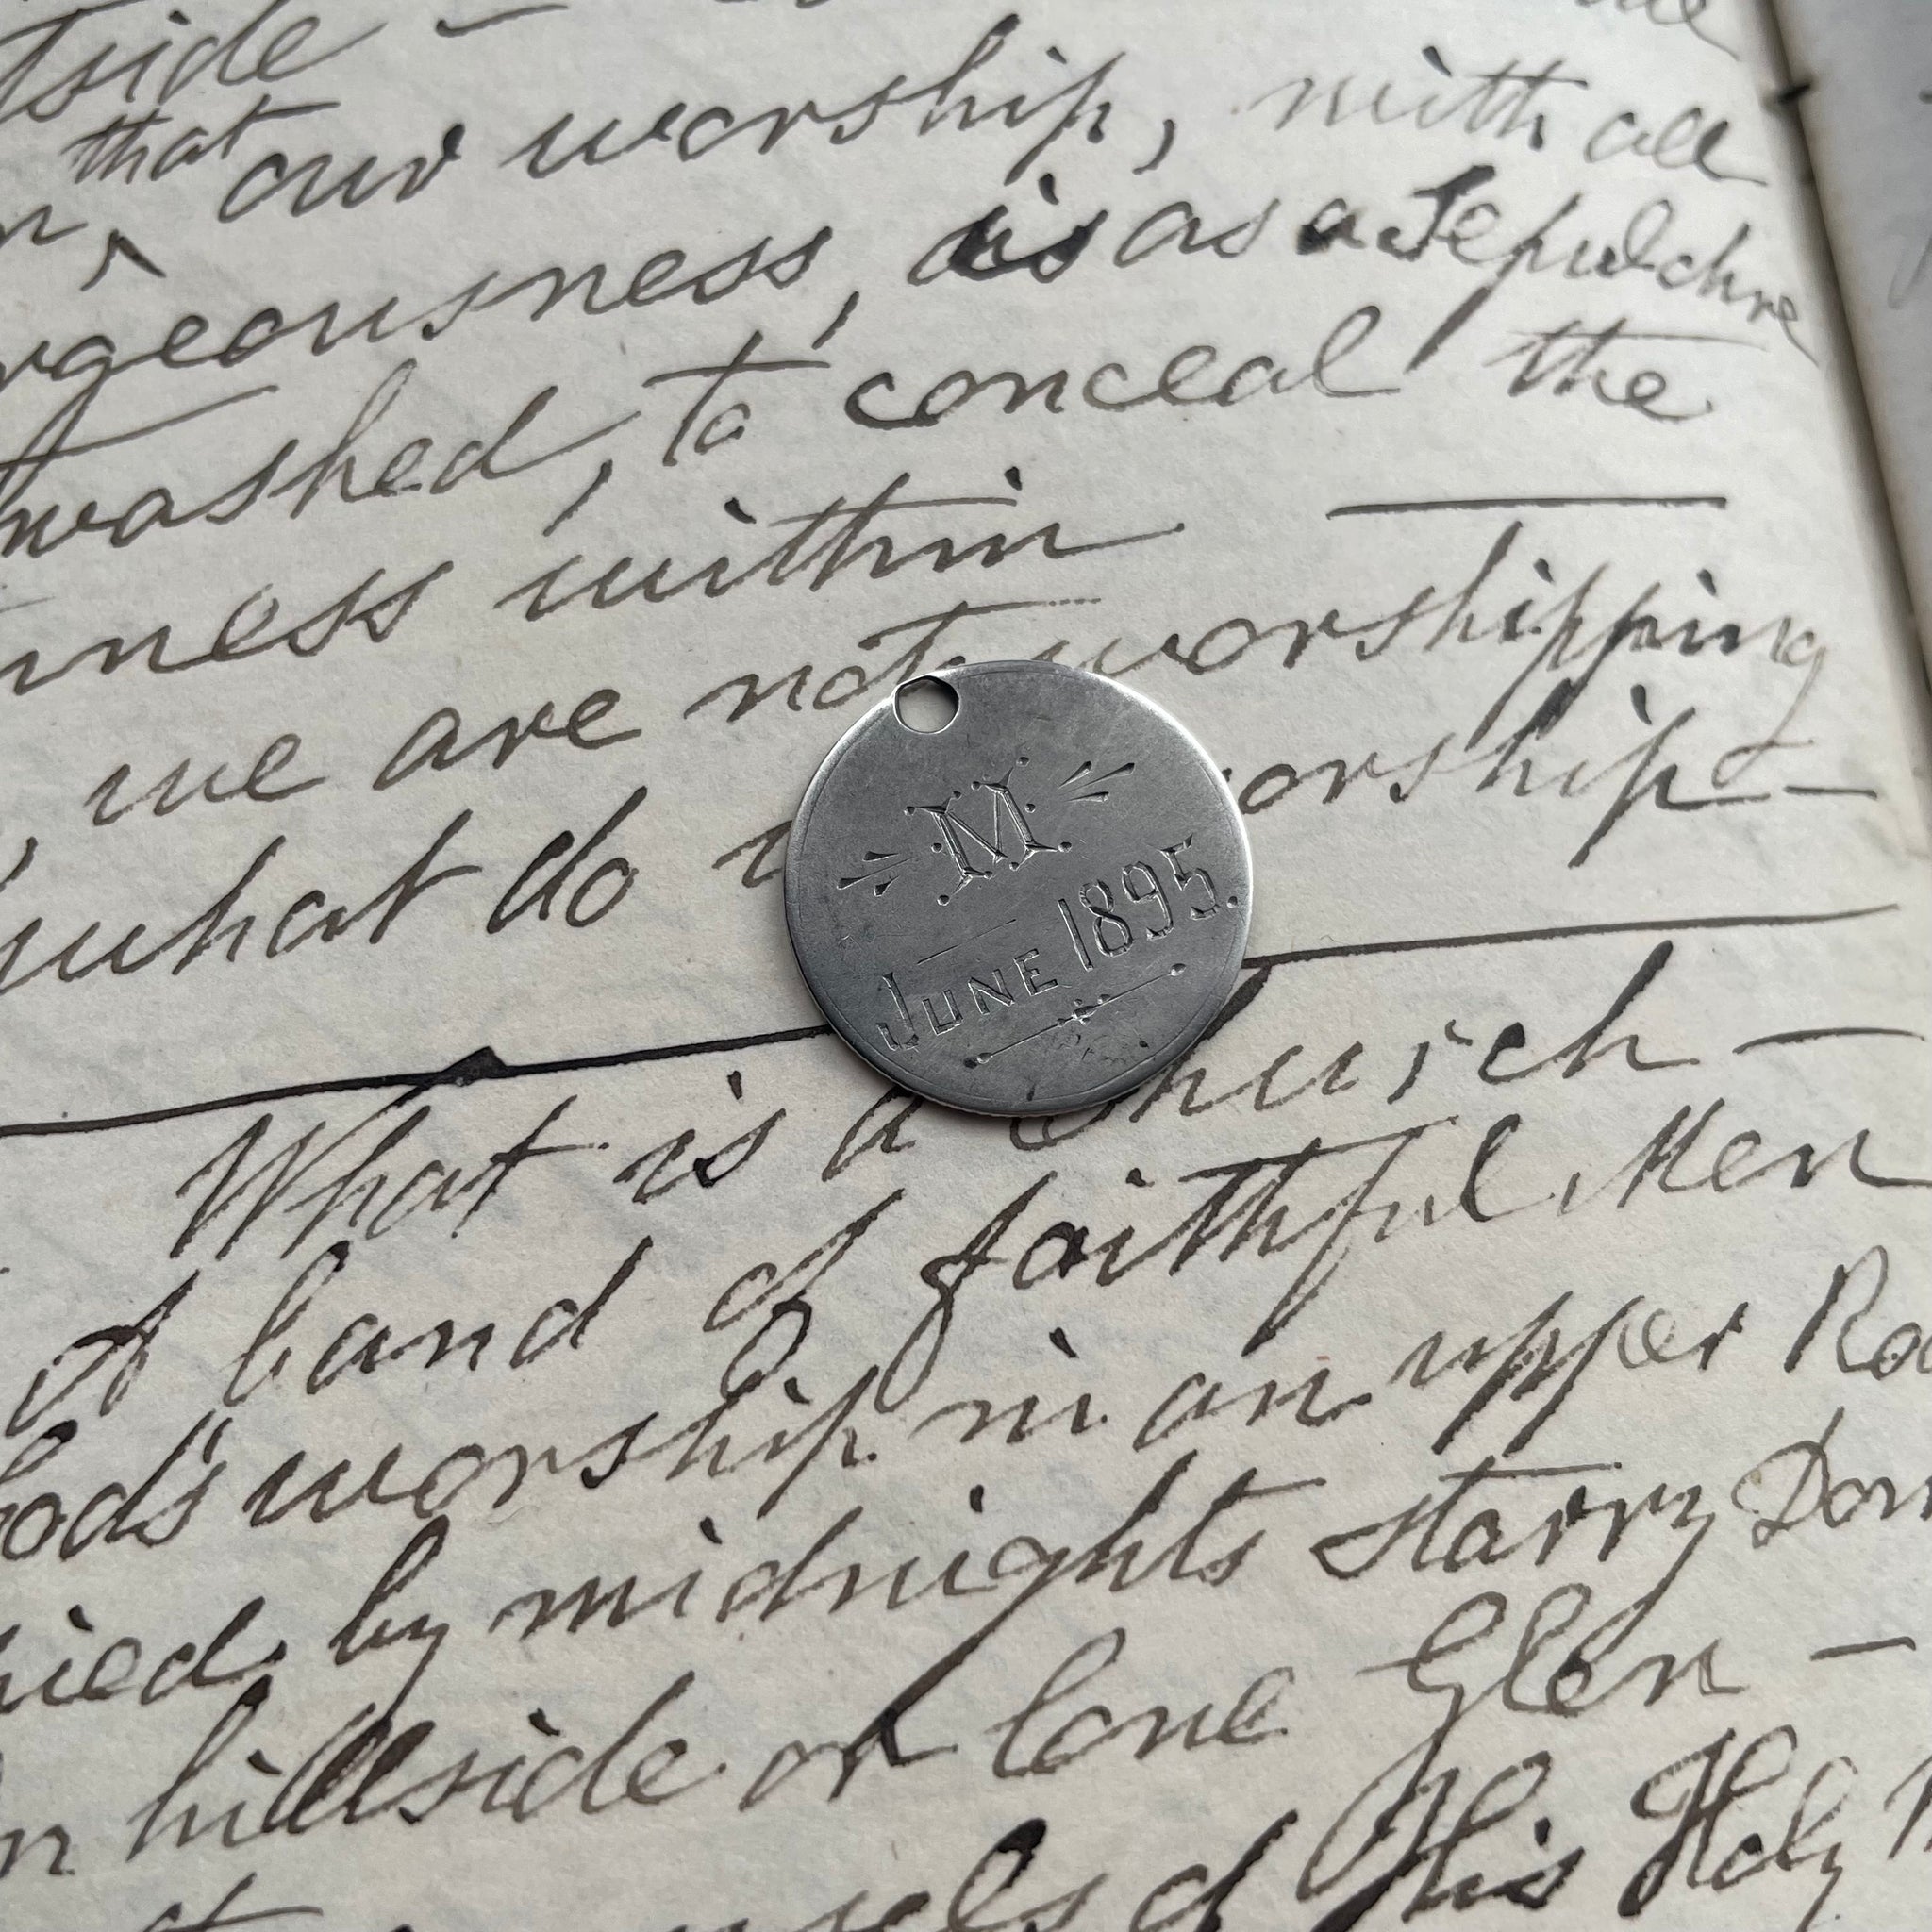 tside -
that
our worship, with all
rgeousness, is as a Sepulchre
washed, to conceal the
ness within
, we are not worshipping
what do worship -
M
JUNE 1895.
What is a Church -
A band of faithful Men
God's worship in an upper Roo
by midnights starry Dom
hillside or lone Glen -
His Holy